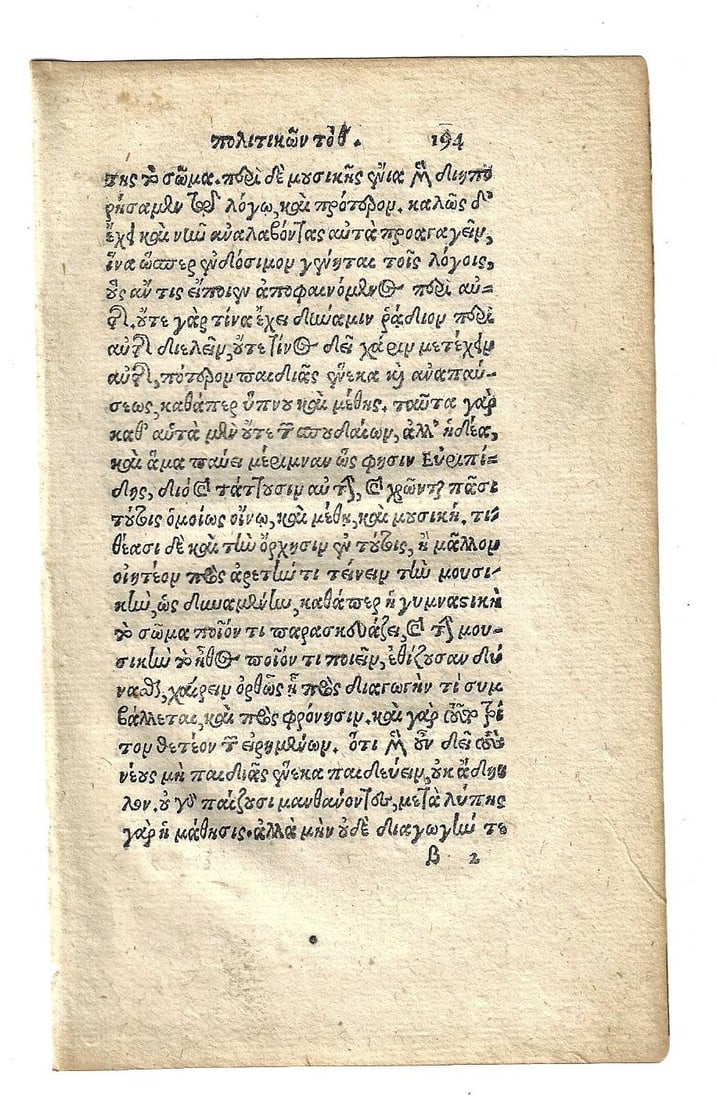 πολιτικῶν τὸ θ. 194
της τὸ σῶμα. περὶ δὲ μουσικῆς ἔνια μὲν διηπο
ρήσαμεν τῷ λόγῳ, καὶ πρότερον. καλῶς δ'
ἔχει καὶ νῦν ἀναλαβόντας αὐτὰ προαγαγεῖν,
ἵνα ὥσπερ ἐνδόσιμον γένηται τοῖς λόγοις,
οὓς ἄν τις εἴποιεν ἀποφαινόμενος περὶ αὐ-
τῆς. οὔτε γὰρ τίνα ἔχει δύναμιν ῥάδιον περὶ
αὐτῆς διελεῖν, οὔτε τίνος δεῖ χάριν μετέχειν
αὐτῆς, πότερον παιδιᾶς ἕνεκα καὶ ἀναπαύ-
σεως, καθάπερ ὕπνου καὶ μέθης. ταῦτα γὰρ
καθ' αὑτὰ μὲν οὔτε τῶν σπουδαίων, ἀλλ' ἡδέα,
καὶ ἅμα παύει μέριμναν ὥς φησιν Εὐριπί-
δης, διὸ καὶ τάττουσιν αὐτὴν, καὶ χρῶνται πᾶσι
τούτοις ὁμοίως οἴνῳ, καὶ μέθῃ, καὶ μουσικῇ. τι-
θέασι δὲ καὶ τὴν ὄρχησιν ἐν τούτοις, ἢ μᾶλλον
οἰητέον πρὸς ἀρετήν τι τείνειν τὴν μουσι-
κὴν, ὡς δυναμένην, καθάπερ ἡ γυμναστικὴ
τὸ σῶμα ποῖόν τι παρασκευάζει, καὶ τὴν μου-
σικὴν τὸ ἦθος ποῖόν τι ποιεῖν, ἐθίζουσαν δύ
νασθαι, χαίρειν ὀρθῶς ἢ πρὸς διαγωγὴν τί συμ
βάλλεται, καὶ πρὸς φρόνησιν. καὶ γὰρ τοῦτο τρί
τον θετέον τῶν εἰρημένων. ὅτι μὲν οὖν δεῖ τοὺς
νέους μὴ παιδιᾶς ἕνεκα παιδεύειν, οὐκ ἄδη-
λον. οὐ γὰρ παίζουσι μανθάνοντες, μετὰ λύπης
γὰρ ἡ μάθησις. ἀλλὰ μὴν οὐδὲ διαγωγήν τε
β 2